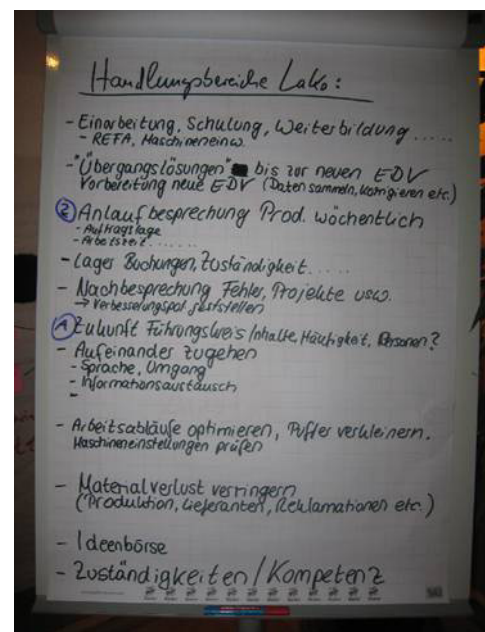 Handlungsbereiche Lako:
- Einarbeitung, Schulung, Weiterbildung .....
- REFA, Maschineneinw.
- "Übergangslösungen" bis zur neuen EDV
Vorbereitung neue EDV (Daten sammeln, korrigieren etc.)
② Anlaufbesprechung Prod. wöchentlich
- Auftragslage
- Arbeitszeit .......
- Lager Buchungen, Zuständigkeit .....
- Nachbesprechung Fehler, Projekte usw.
→ Verbesserungspot. feststellen
Zukunft Führungskreis Inhalte, Häufigkeit, Personen?
- Aufeinander zugehen
- Sprache, Umgang
- Informationsaustausch
-
- Arbeitsabläufe optimieren, Puffer verkleinern.
Maschineneinstellungen prüfen
- Materialverlust verringern
(Produktion, Lieferanten, Reklamationen etc.)
- Ideenbörse
- Zuständigkeiten / Kompetenz